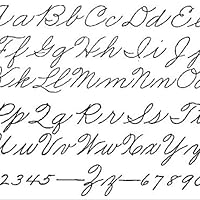 Aa Bb Cc Dd Ee
Ff Gg Hh Ii Jj
Kk Ll Mm Nn Oo
Pp Qq Rr Ss Tt
Uu Vv Ww Xx Yy
12345—Zz—67890